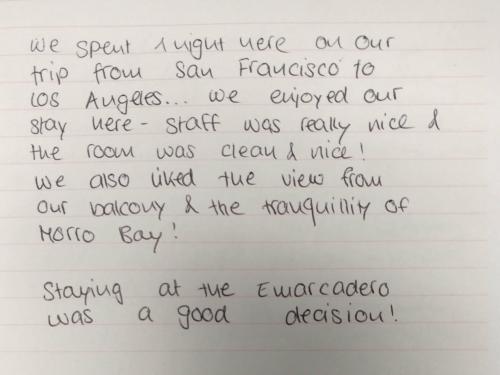 We spent 1 night here on our
trip from San Francisco to
Los Angeles... We enjoyed our
stay here - staff was really nice &
the room was clean & nice!
We also liked the view from
our balcony & the tranquillity of
Morro Bay!
Staying at the Emarcadero
was a good decision!